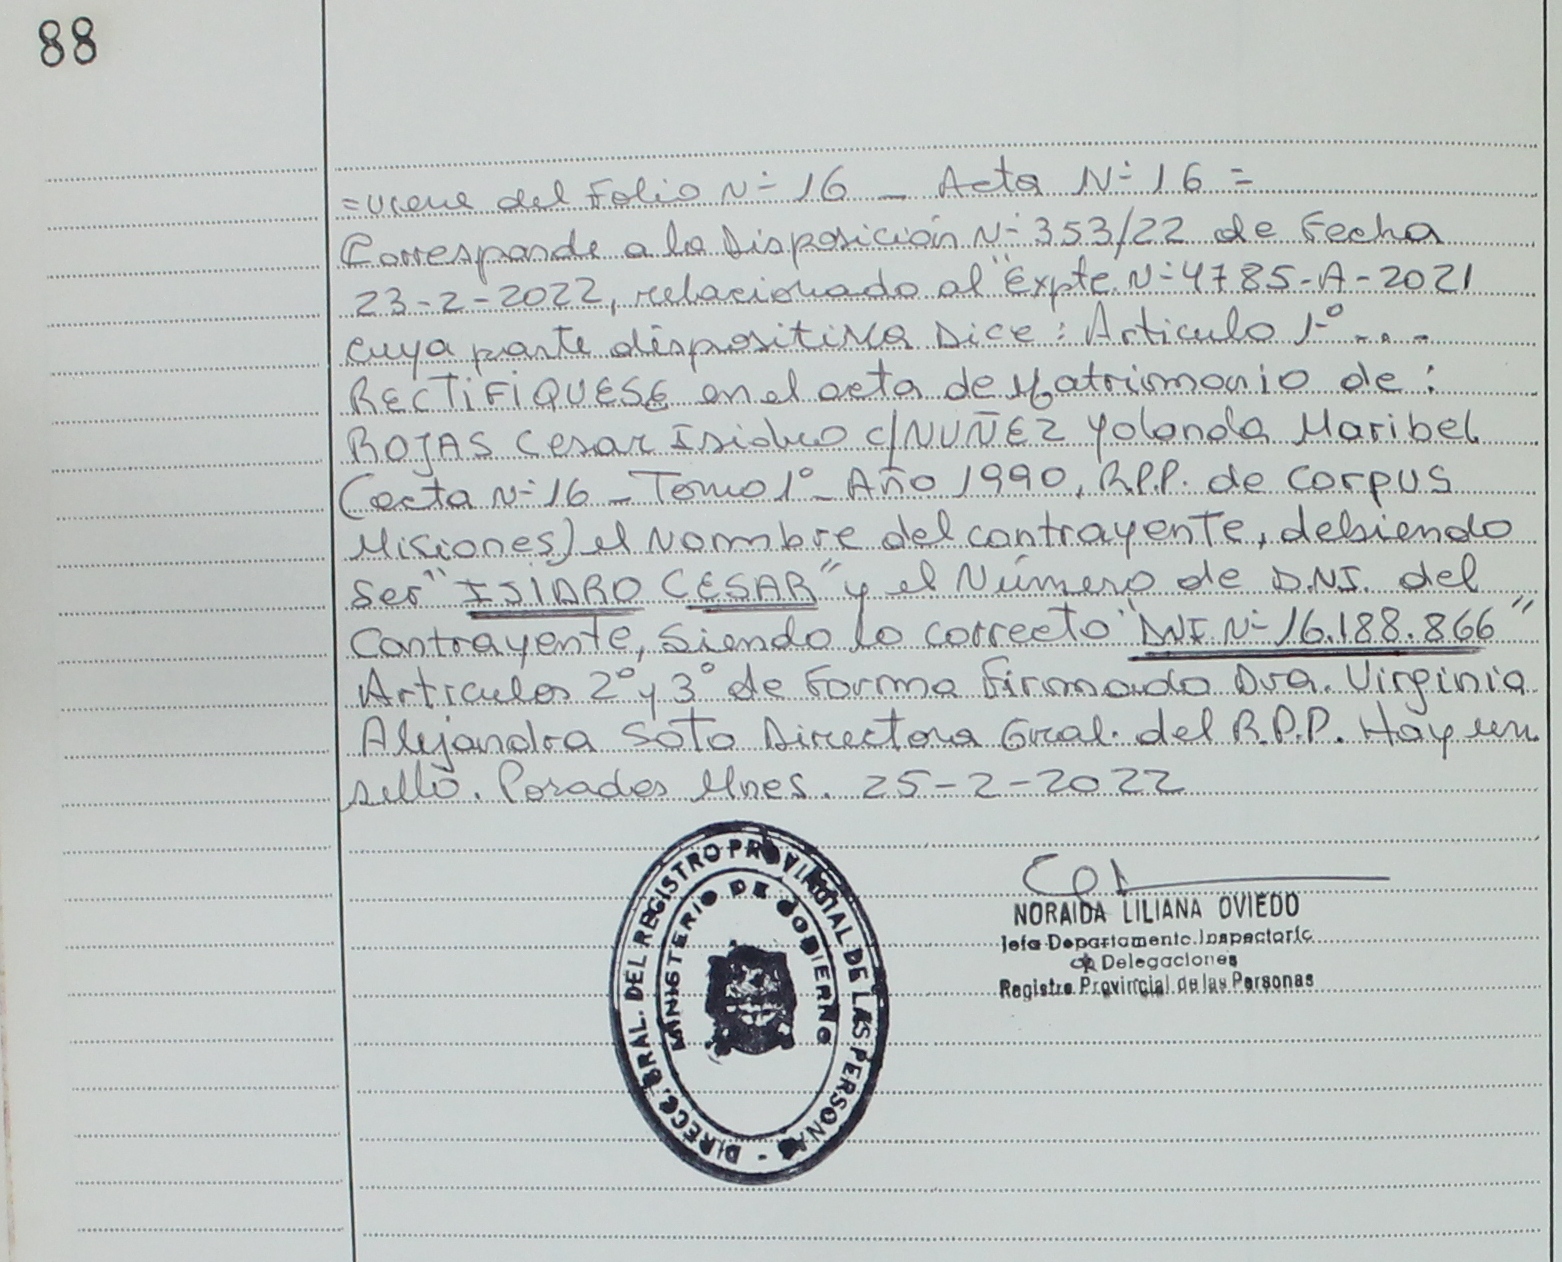 88
=Viene del Folio N° 16 _ Acta N° 16 =
Corresponde a la Disposición N° 353/22 de Fecha
23-2-2022, relacionado al "Expte. N° 4785-A-2021
cuya parte dispositiva Dice: Articulo 1° ...
RECTIFIQUESE en el acta de Matrimonio de:
ROJAS Cesar Isidro c/NUÑEZ Yolanda Maribel
(acta N° 16 _ Tomo 1° _ Año 1990, R.P.P. de Corpus
Misiones) el Nombre del contrayente, debiendo
ser "ISIDRO CESAR" y el Número de D.N.I. del
Contrayente, siendo lo correcto "DNI N° 16.188.866"
Articulos 2° y 3° de Forma Firmado Dra. Virginia
Alejandra Soto Directora Gral. del R.P.P. Hay un
sello. Posadas Mnes. 25-2-2022
DIRECC. GRAL. DEL REGISTRO PROVINCIAL DE LAS PERSONAS -
MINISTERIO DE GOBIERNO
NORAIDA LILIANA OVIEDO
Jefa Departamento Inspectoria
de Delegaciones
Registro Provincial de las Personas